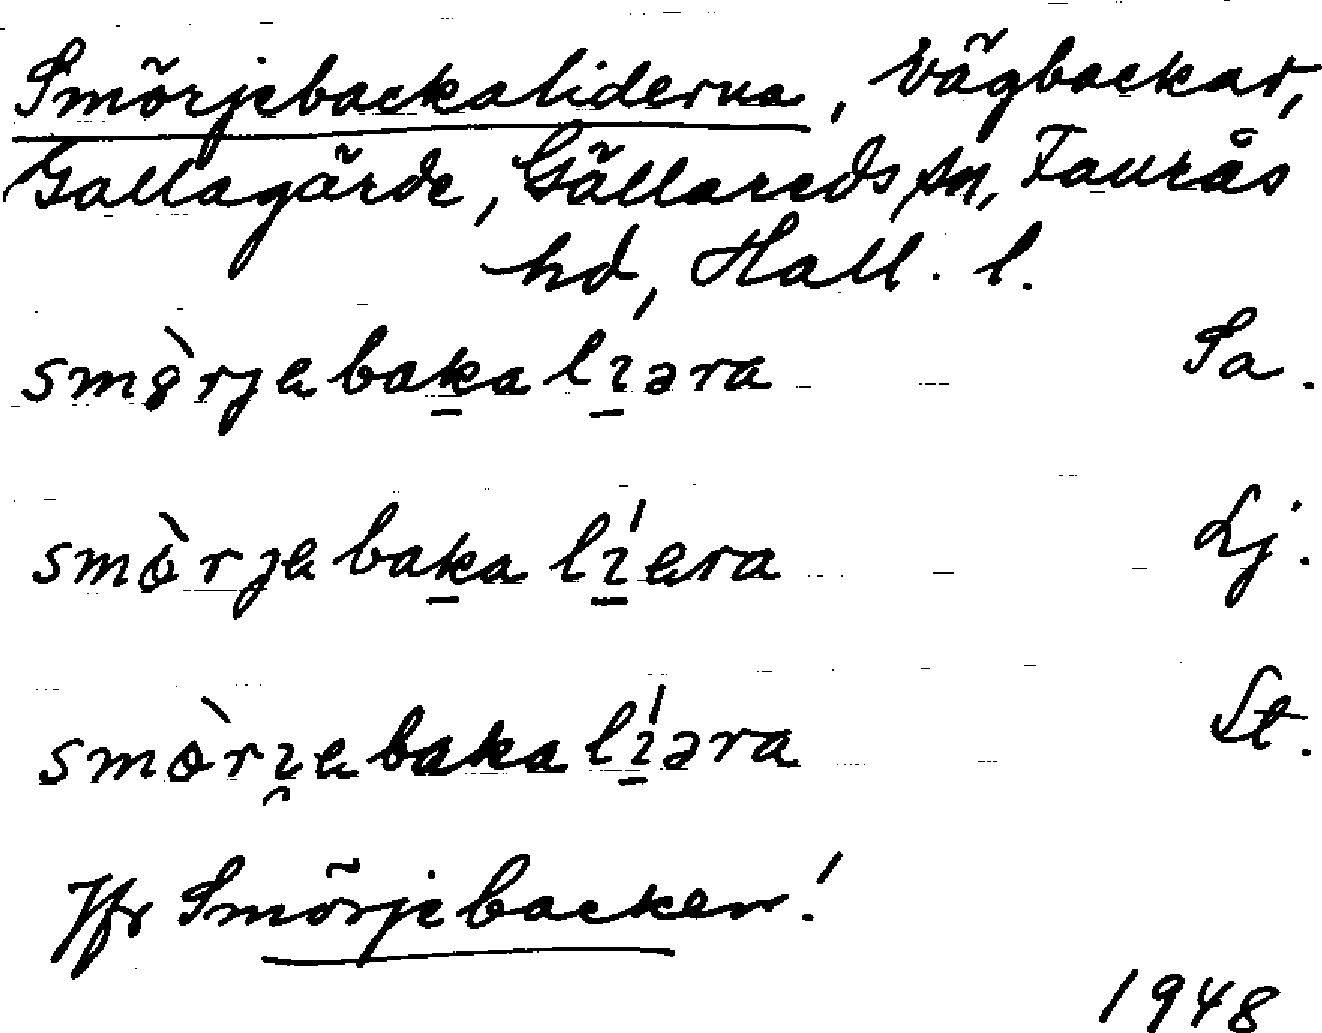 Smörjebackaliderna, vägbackar,
Gallagärde, Gällareds sn, Faurås
hd, Hall. l.
smò̱rjebaka lí̱əra Sa.
smòrjebaka líera Lj.
smòri̯ebaka líəra St.
Jfr Smörjebacken!
1948